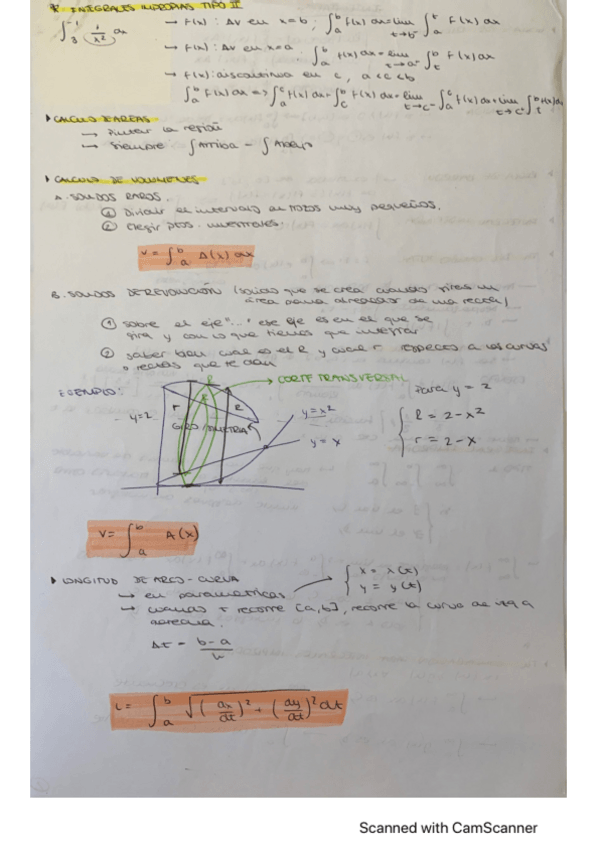 * INTEGRALES IMPROPIAS TIPO II
∫₋₃⁻¹ 1/x² dx → f(x): AV en x=b; ∫ₐᵇ f(x) dx = lim t→b⁻ ∫ₐᵗ f(x) dx
→ f(x): AV en x=a. ∫ₐᵇ f(x) dx = lim t→a⁺ ∫ₜᵇ f(x) dx
→ f(x): discontinua en c, a < c < b
∫ₐᵇ f(x) dx => ∫ₐᶜ f(x) dx + ∫꜀ᵇ f(x) dx = lim t→c⁻ ∫ₐᵗ f(x) dx + lim t→c⁺ ∫ₜᵇ f(x) dx
▸ CALCULO DE AREAS
→ Pintar la región
→ Siempre ∫Arriba - ∫Abajo
▸ CALCULO DE VOLUMENES
A. SOLIDOS RAROS.
① Dividir el intervalo en trozos muy pequeños.
② Elegir ptos. muestrales.
V = ∫ₐᵇ A(x) dx
B. SOLIDOS DE REVOLUCIÓN (solido que se crea cuando giras un
área plana alrededor de una recta)
① sobre el eje "..." ese eje es en el que se
gira y con lo que tienes que integrar
② saber bien cual es el R y cual r respecto a las curvas
o rectas que te dan
EJEMPLO:
→ CORTE TRANSVERSAL
Para y = 2
y=2
r
R
R
GIRO/SIMETRIA
y=x²
y=x
{ R = 2-x²
r = 2-x
V= ∫ₐᵇ A(x)
▸ LONGITUD DE ARCO - CURVA
→ en parametricas
{ x = x(t)
y = y(t)
→ cuando t recorre [a,b], recorre la curva de izq a
derecha.
Δt = b-a/n
L = ∫ₐᵇ √((dx/dt)² + (dy/dt)²) dt
Scanned with CamScanner